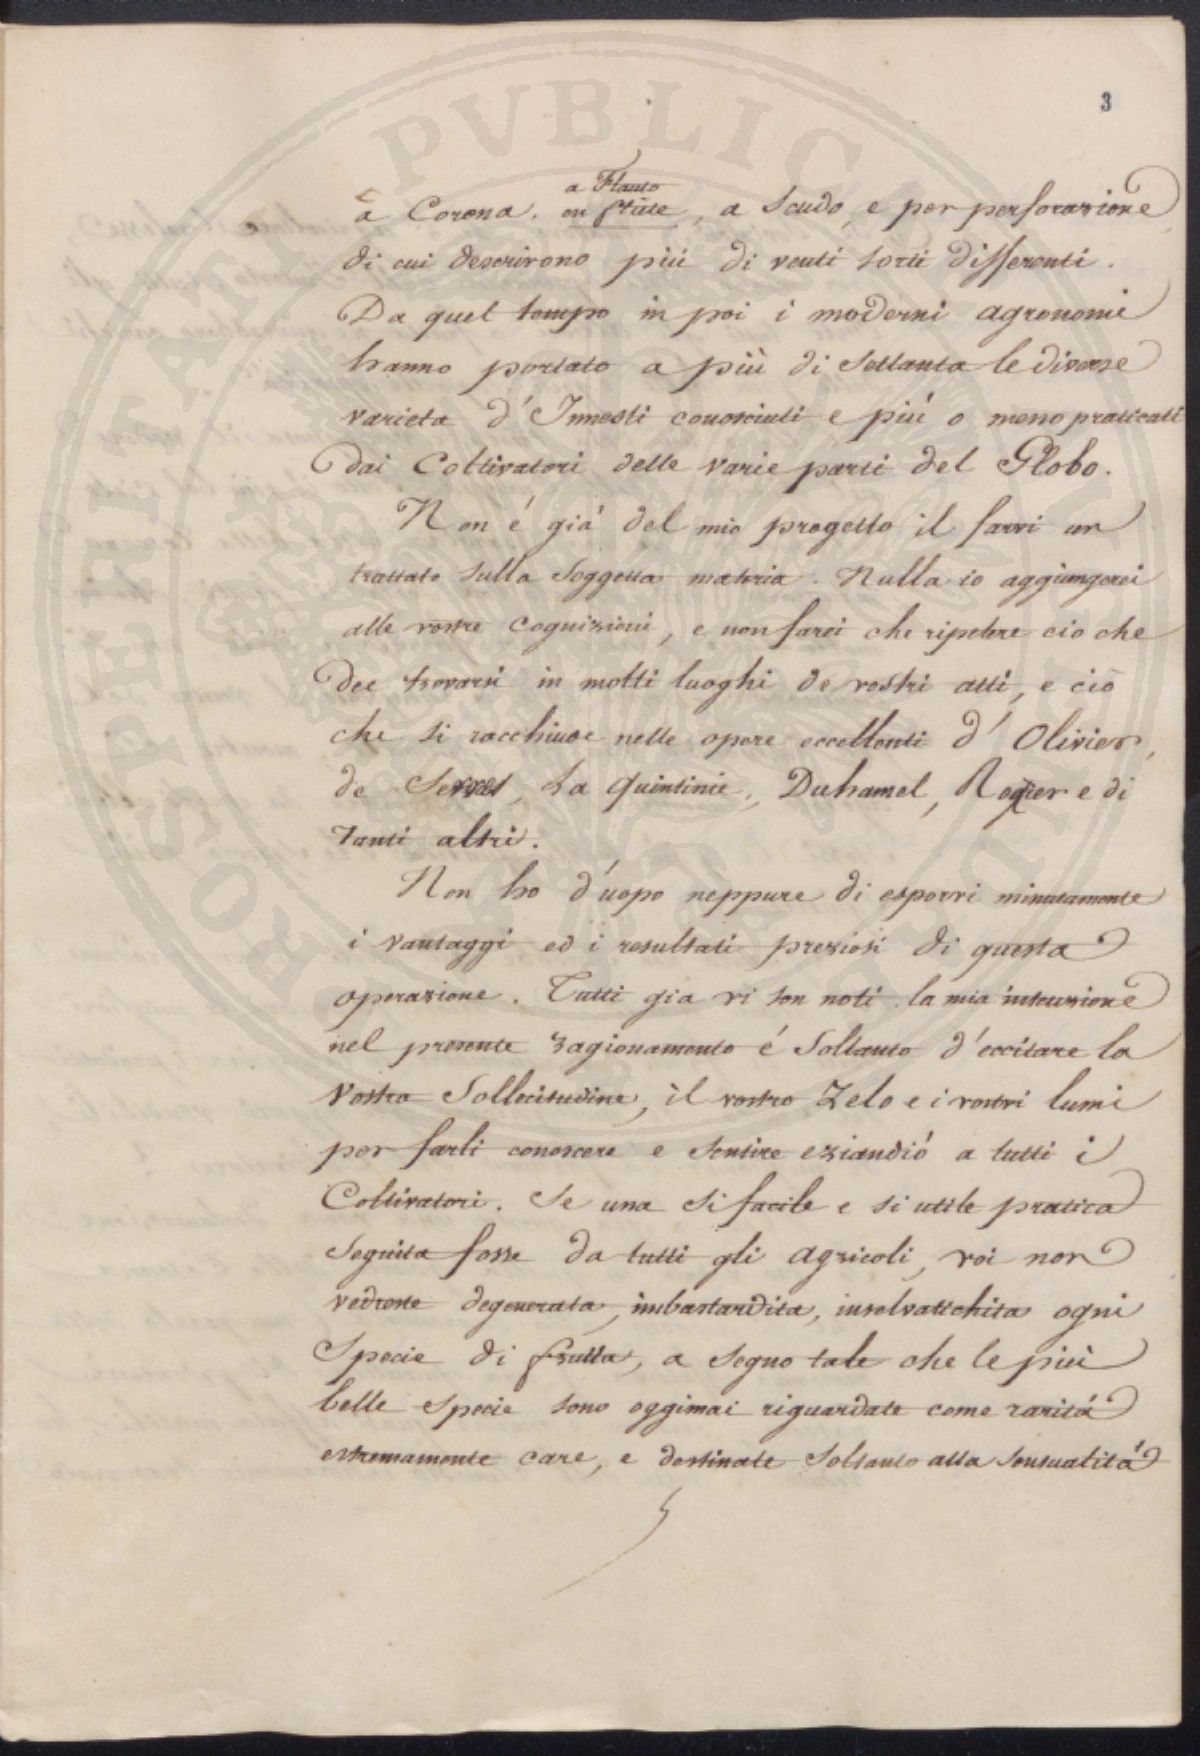 3
a Flauto
a Corona. en flûte, a Scudo, e per perforazione
di cui descrivono piú di venti sorti differenti.
Da quel tempo in poi i moderni agronomi
hanno portato a più di settanta le diverse
varieta d'Innesti conosciuti e piú o meno praticati
dai Coltivatori delle varie parti del Globo.
Non é giá del mio progetto il farvi un
trattato sulla soggetta materia. Nulla io aggiungerei
alle vostre cognizioni, e non farei che ripetere ció che
dee trovarsi in molti luoghi de vostri atti, e ció
che si racchiude nelle opere eccellenti d'Olivier,
de Serres, La Quintinie, Duhamel, Rozier e di
tanti altri.
Non ho d'uopo neppure di esporvi minutamente
i vantaggi ed i resultati preziosi di questa
operazione. Tutti gia vi son noti. la mia intenzione
nel presente ragionamento é soltanto d'eccitare la
vostra Sollecitudine, il vostro Zelo e i vostri lumi
per farli conoscere e sentire eziandió a tutti i
Coltivatori. Se una si facile e si utile pratica
seguita fosse da tutti gli agricoli, voi non
vedreste degenerata, imbastardita, inselvatichita ogni
Specie di frutta, a segno tale che le piú
belle specie sono oggimai riguardate come raritá
estremamente care, e destinate soltanto alla sensualitá
PVBLICAE
VTILITATI
PROSPERITATI